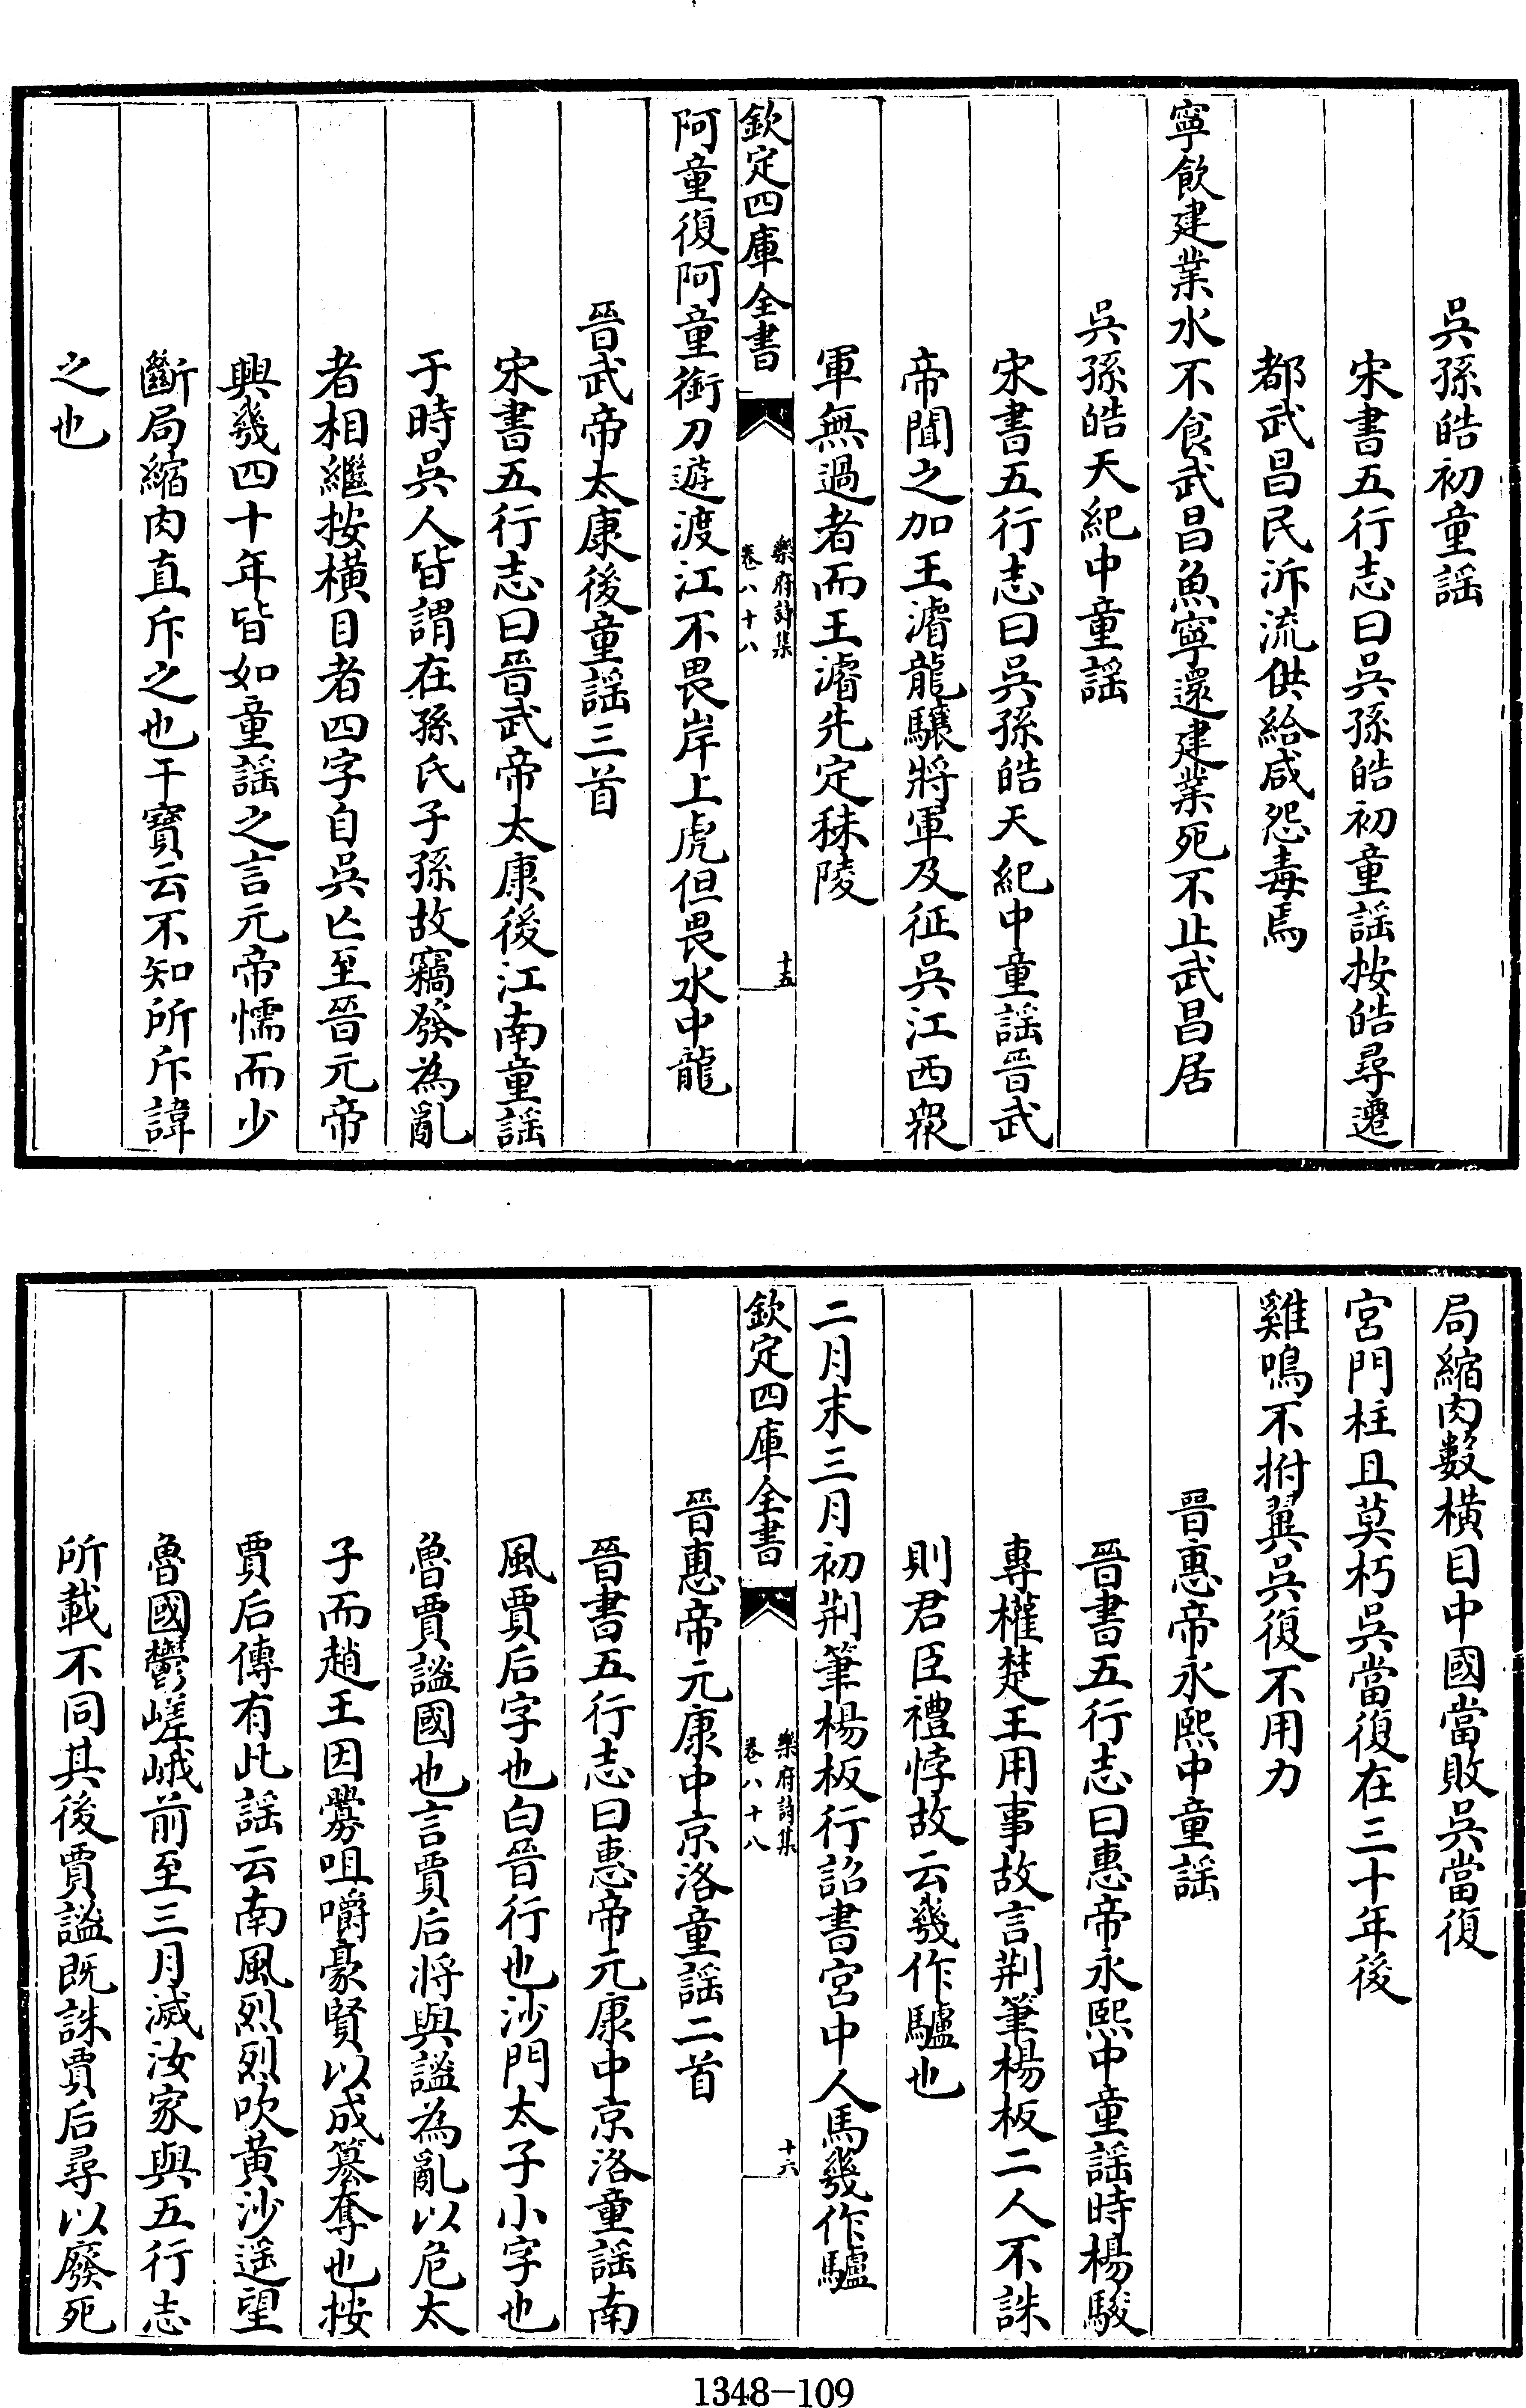 吳孫皓初童謡
宋書五行志曰吳孫皓初童謡按皓尋遷
都武昌民泝流供給咸怨毒焉
寧飲建業水不食武昌魚寧還建業死不止武昌居
吳孫皓天紀中童謡
宋書五行志曰吳孫皓天紀中童謡晉武
帝聞之加王濬龍驤將軍及征吳江西衆
軍無過者而王濬先定秣陵
欽定四庫全書
樂府詩集
卷八十八
十五
阿童復阿童銜刀遊渡江不畏岸上虎但畏水中龍
晉武帝太康後童謡三首
宋書五行志曰晉武帝太康後江南童謡
于時吳人皆謂在孫氏子孫故竊發為亂
者相繼按橫目者四字自吳亡至晉元帝
興幾四十年皆如童謡之言元帝懦而少
斷局縮肉直斥之也干寶云不知所斥諱
之也
局縮肉數橫目中國當敗吳當復
宮門柱且莫朽吳當復在三十年後
雞鳴不拊翼吳復不用力
晉惠帝永熙中童謡
晉書五行志曰惠帝永熙中童謡時楊駿
專權楚王用事故言荆筆楊板二人不誅
則君臣禮悖故云幾作驢也
二月末三月初荆筆楊板行詔書宮中人馬幾作驢
欽定四庫全書
樂府詩集
卷八十八
十六
晉惠帝元康中京洛童謡二首
晉書五行志曰惠帝元康中京洛童謡南
風賈后字也白晉行也沙門太子小字也
魯賈謐國也言賈后將與謐為亂以危太
子而趙王因釁咀嚼豪賢以成篡奪也按
賈后傳有此謡云南風烈烈吹黄沙遥望
魯國鬱嵯峨前至三月滅汝家與五行志
所載不同其後賈謐既誅賈后尋以廢死
1348-109